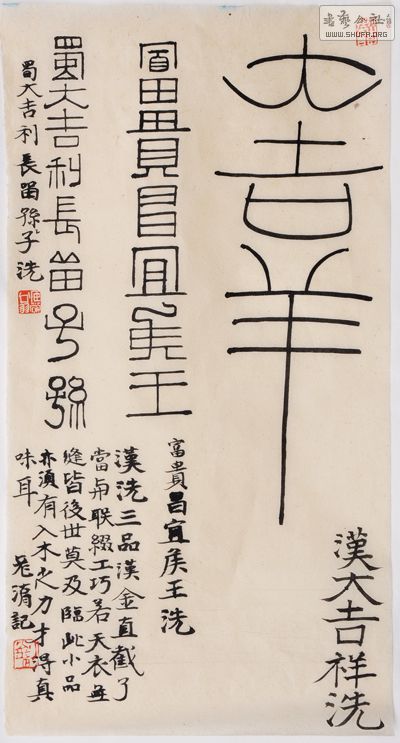 大吉羊
漢大吉祥洗
富貴昌宜侯王
富貴昌宜侯王洗
蜀大吉利長留子孫
蜀大吉利長留孫子洗
漢洗三品漢金直截了
當 联綴工巧若天衣無
縫皆後世莫及臨此小品
亦須有入木之力才得真
味耳 記
WWW.SHUFA.ORG